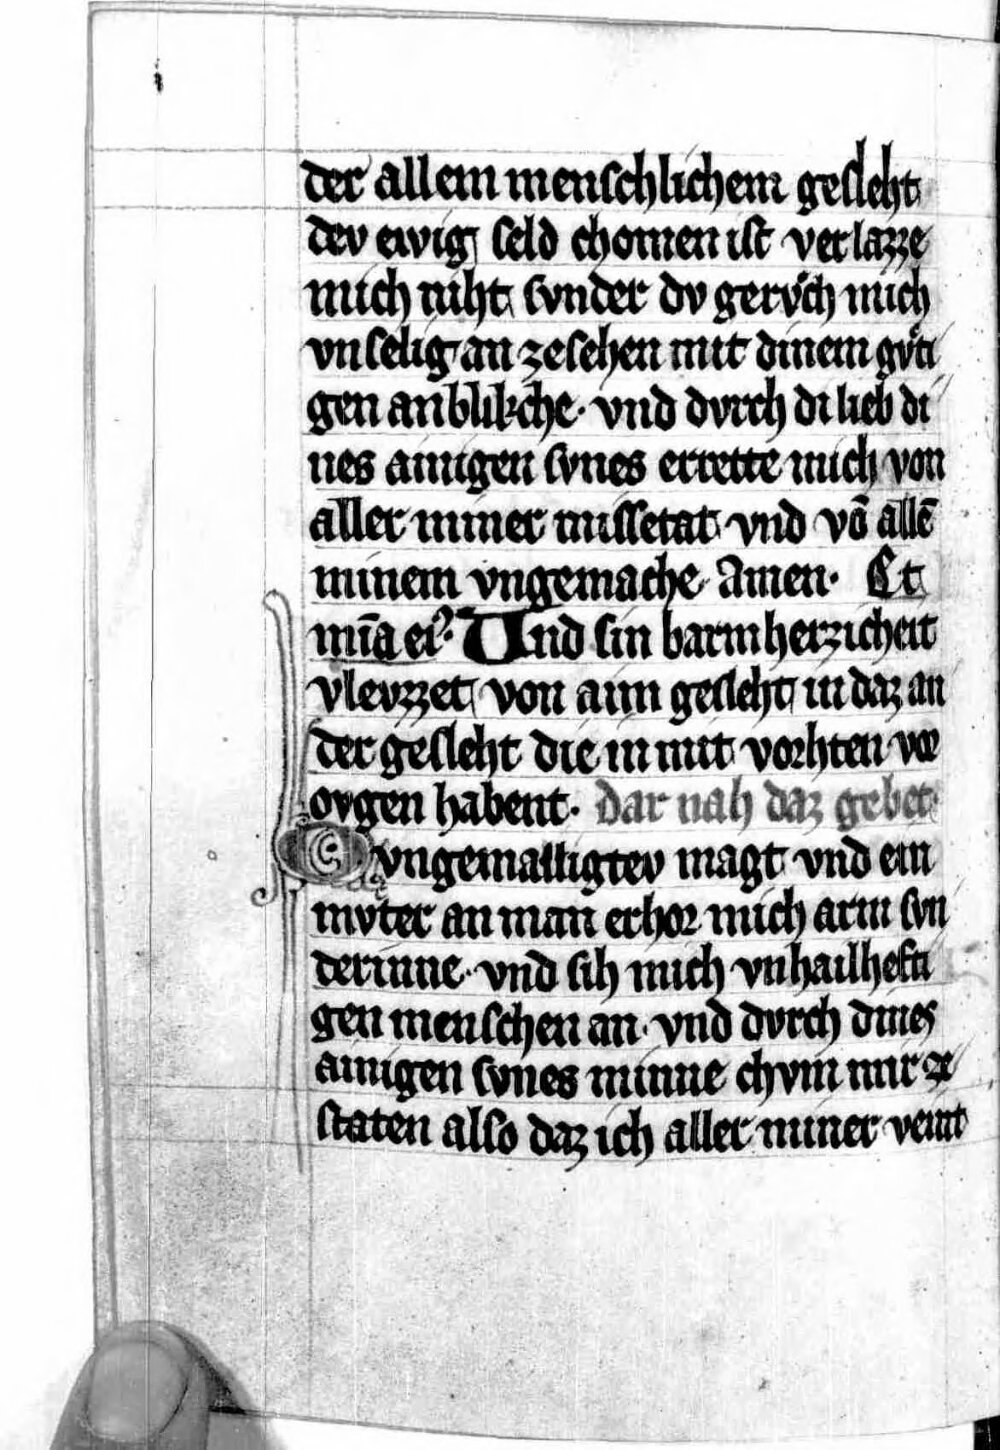 der allem menschlichem gesleht
dev ewig seld chomen ist verlazze
mich niht sunder dv gervͦch mich
vnselig an zesehen mit dinem gvͤti
gen anblikche · vnd dvrch di lieb di
nes ainigen svnes errette mich von
aller miner missetat vnd vō allē
minem vngemache Amen · Et
mīa ei⁹ · Und sin barmherzicheit
vlevzzet von aim gesleht in daz an
der gesleht die in mit vorhten vor
ovgen habent · Dar nah daz gebet
E vngemailligtev magt vnd ein
mvͦter an man erhor mich arm svn
derinne · vnd sih mich vnhailhefti
gen menschen an · vnd dvrch dines
ainigen svnes minne chvm mir ze
staten also daz ich aller miner veint